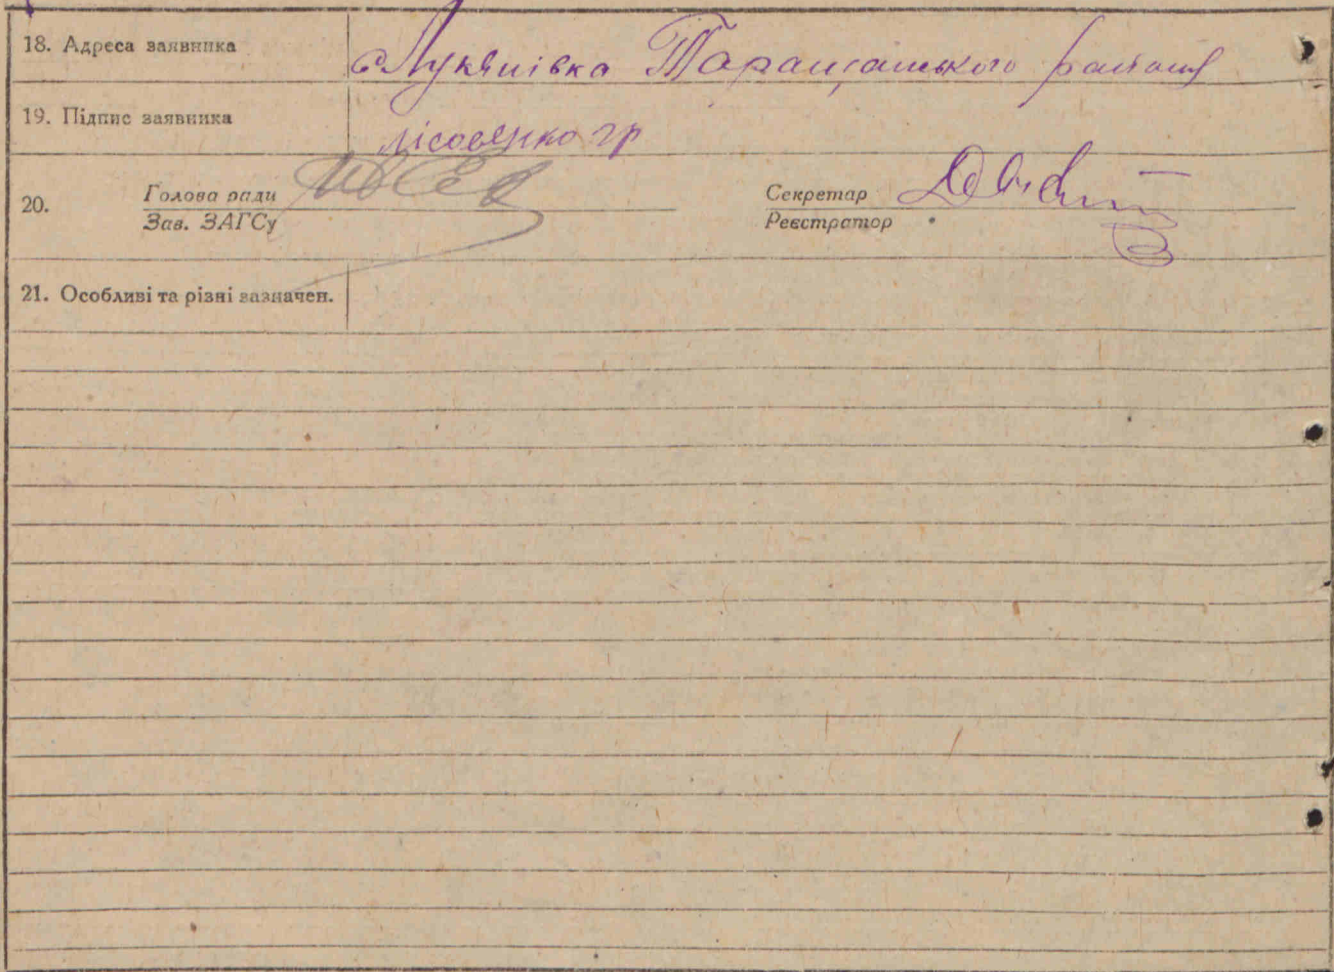 18. Адреса заявника с Лукянівка Таращанського району
19. Підпис заявника лісовенко гр
20. Голова ради Секретар
Зав. ЗАГСу Реєстратор
21. Особливі та різні зазначен.